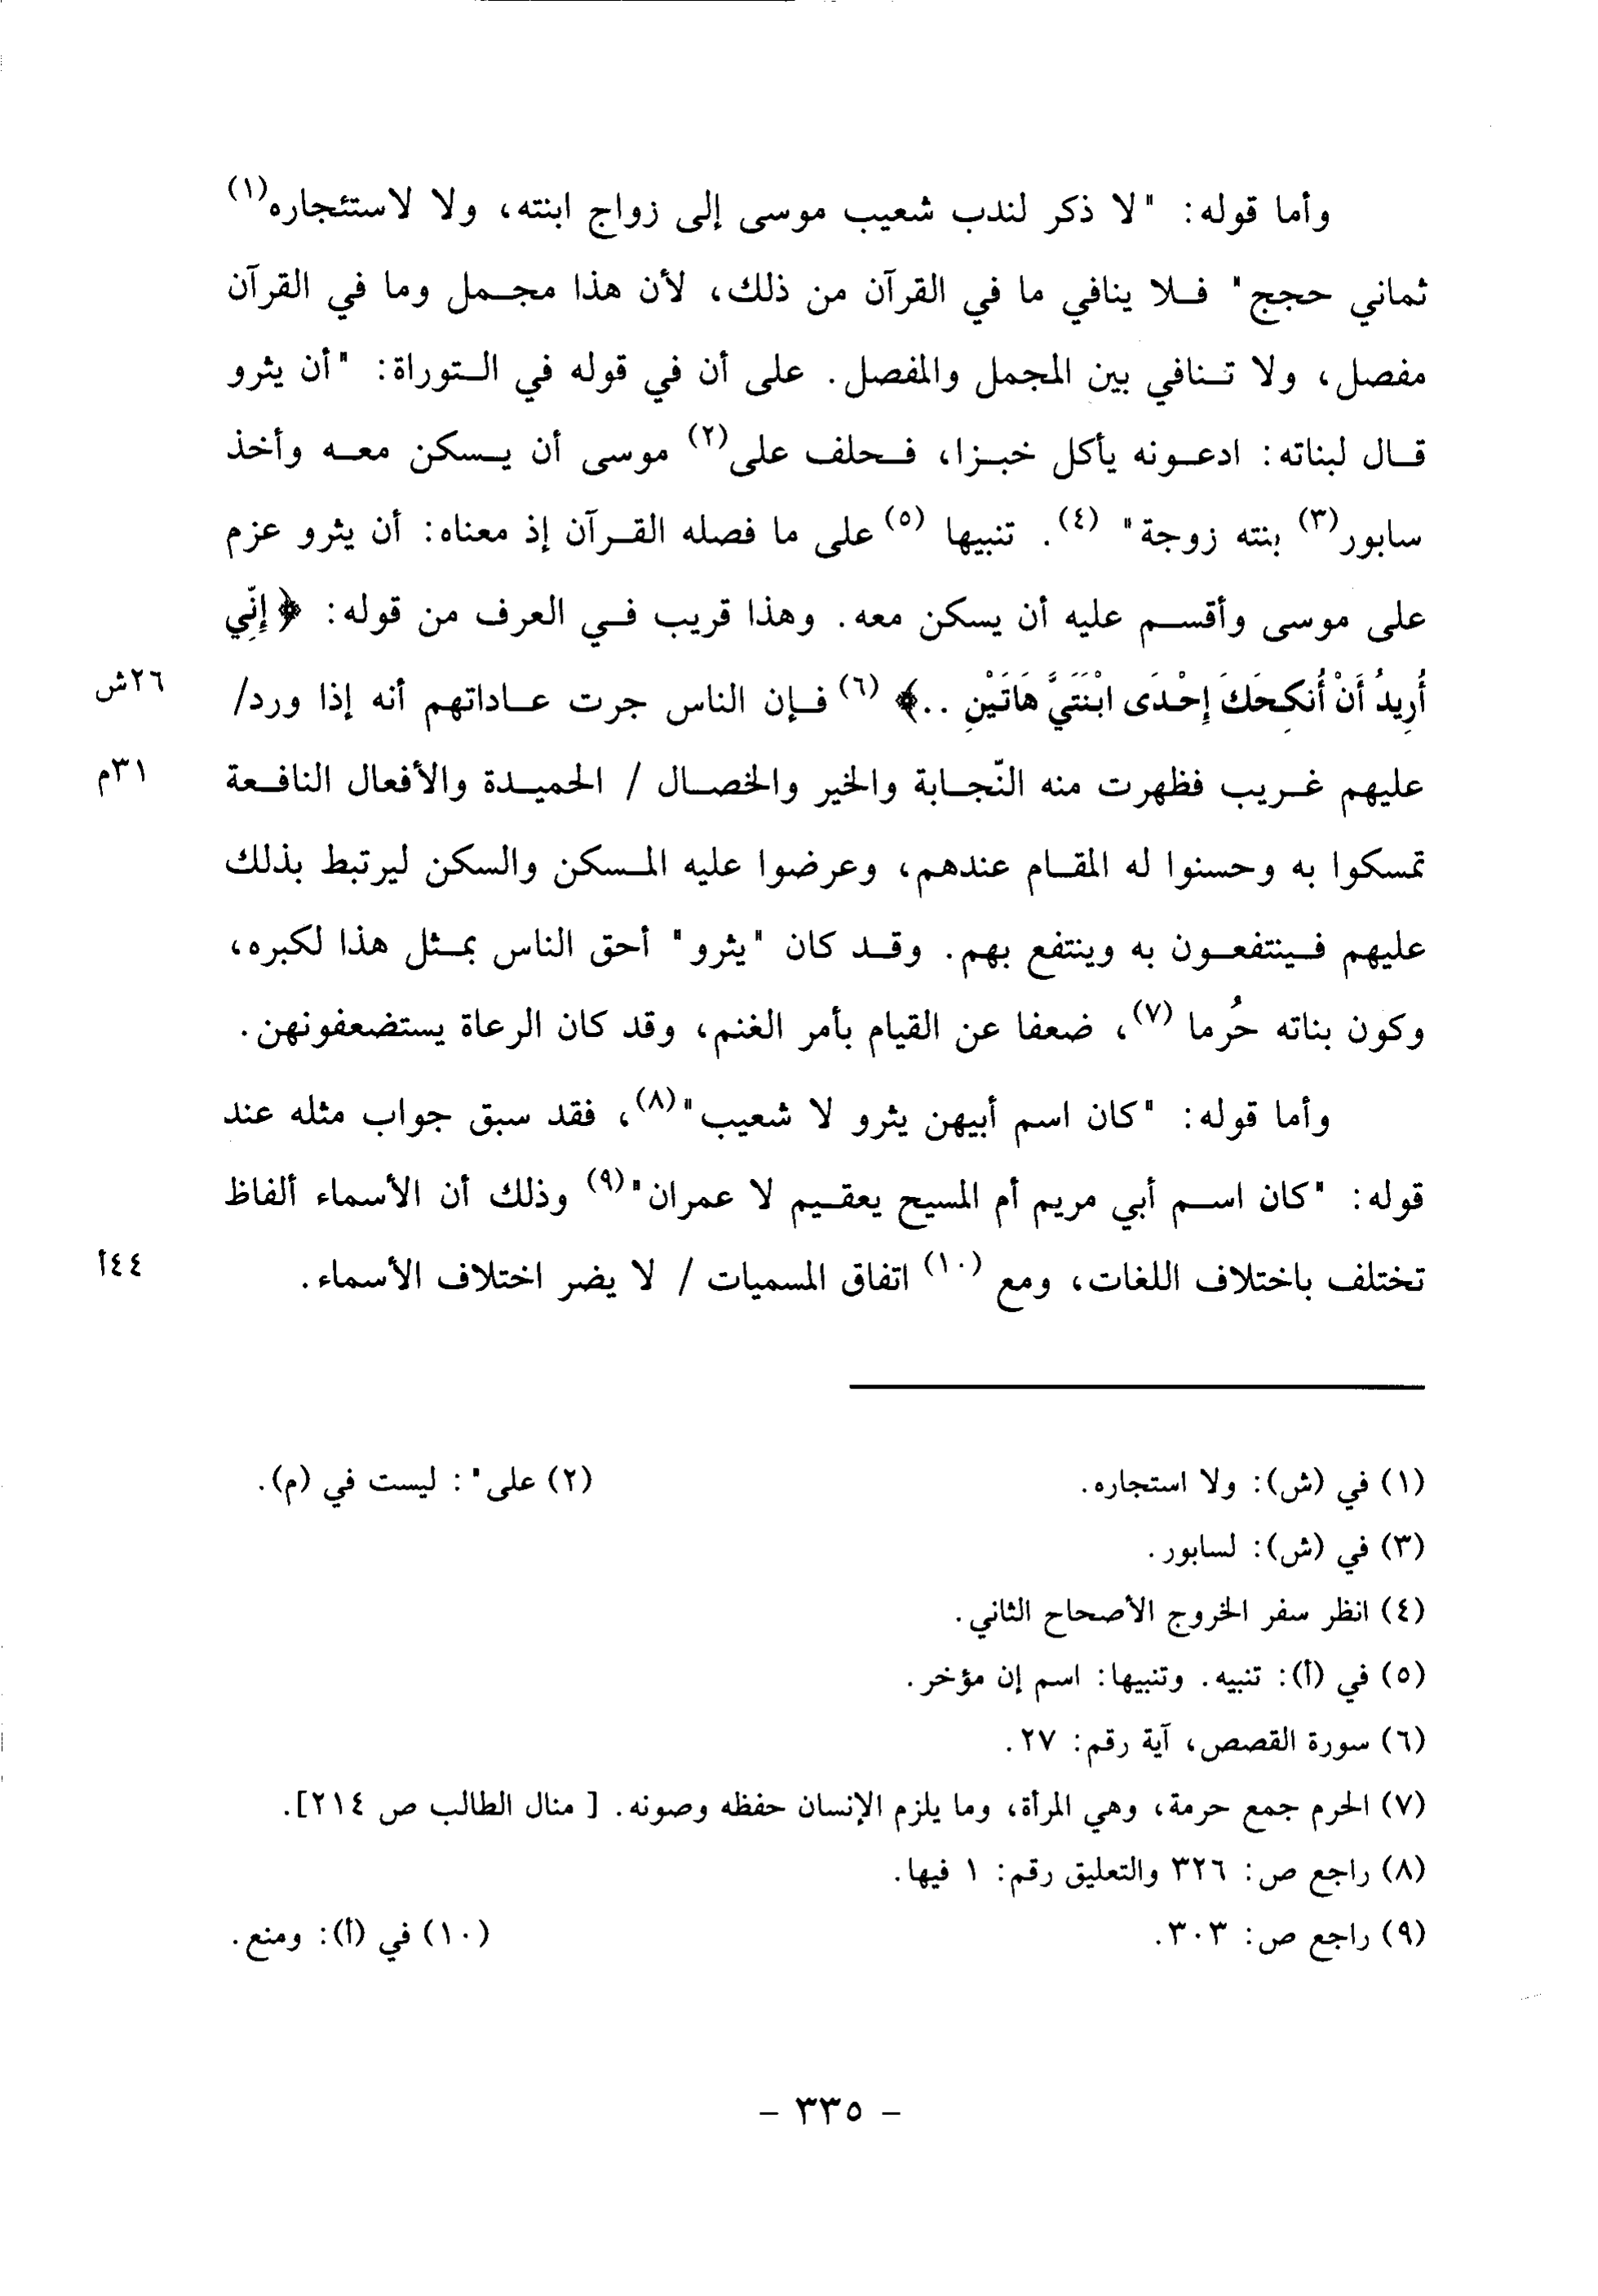 وأما قوله: "لا ذكر لندب شعيب موسى إلى زواج ابنته، ولا لاستئجاره(١)
ثماني حجج" فلا ينافي ما في القرآن من ذلك، لأن هذا مجمل وما في القرآن
مفصل، ولا تنافي بين المجمل والمفصل. على أن في قوله في التوراة: "أن يثرو
قال لبناته: ادعونه يأكل خبزا، فحلف على(٢) موسى أن يسكن معه وأخذ
سابور(٣) بنته زوجة" (٤). تنبيها (٥) على ما فصله القرآن إذ معناه: أن يثرو عزم
على موسى وأقسم عليه أن يسكن معه. وهذا قريب في العرف من قوله: ﴿إِنِّي
أُرِيدُ أَنْ أُنكِحَكَ إِحْدَى ابْنَتَيَّ هَاتَيْنِ ..﴾ (٦) فإن الناس جرت عاداتهم أنه إذا ورد/ ٢٦ش
عليهم غريب فظهرت منه النّجابة والخير والخصال / الحميدة والأفعال النافعة ٣١م
تمسكوا به وحسنوا له المقام عندهم، وعرضوا عليه المسكن والسكن ليرتبط بذلك
عليهم فينتفعون به وينتفع بهم. وقد كان "يثرو" أحق الناس بمثل هذا لكبره،
وكون بناته حُرما (٧)، ضعفا عن القيام بأمر الغنم، وقد كان الرعاة يستضعفونهن.
وأما قوله: "كان اسم أبيهن يثرو لا شعيب"(٨)، فقد سبق جواب مثله عند
قوله: "كان اسم أبي مريم أم المسيح يعقيم لا عمران"(٩) وذلك أن الأسماء ألفاظ
تختلف باختلاف اللغات، ومع (١٠) اتفاق المسميات / لا يضر اختلاف الأسماء. ٤٤أ
(١) في (ش): ولا استجاره. (٢) على": ليست في (م).
(٣) في (ش): لسابور.
(٤) انظر سفر الخروج الأصحاح الثاني.
(٥) في (أ): تنبيه. وتنبيها: اسم إن مؤخر.
(٦) سورة القصص، آية رقم: ٢٧.
(٧) الحرم جمع حرمة، وهي المرأة، وما يلزم الإنسان حفظه وصونه. [ منال الطالب ص ٢١٤].
(٨) راجع ص: ٣٢٦ والتعليق رقم: ١ فيها.
(٩) راجع ص: ٣٠٣. (١٠) في (أ): ومنع.
- ٣٣٥ -